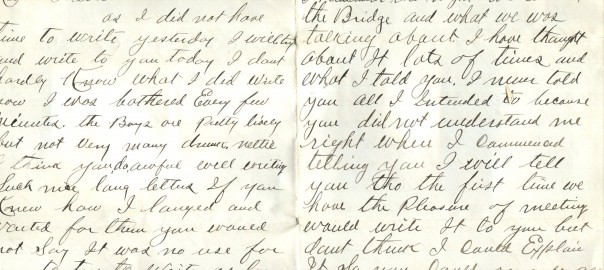 as I did not have
time to write yesterday I will try
and write to you today I dont
hardly Know what I did write
now I was bothered Every few
minutes. the Boys are Pretty lively
but not Very many drunk. nettie
I think you do awful well writing
Such nice long letters If you
Knew how I longed and
wanted for them you would
not Say It was no use for
to write as
the Bridge and what we was
talking about I have thought
about It lots of times and
what I told you. I never told
you all I Intended to because
you did not understand me
right when I Commenced
telling you I will tell
you tho the first time we
have the Pleasure of meeting
would write It to you but
dont think I Could Explain
It So you Could